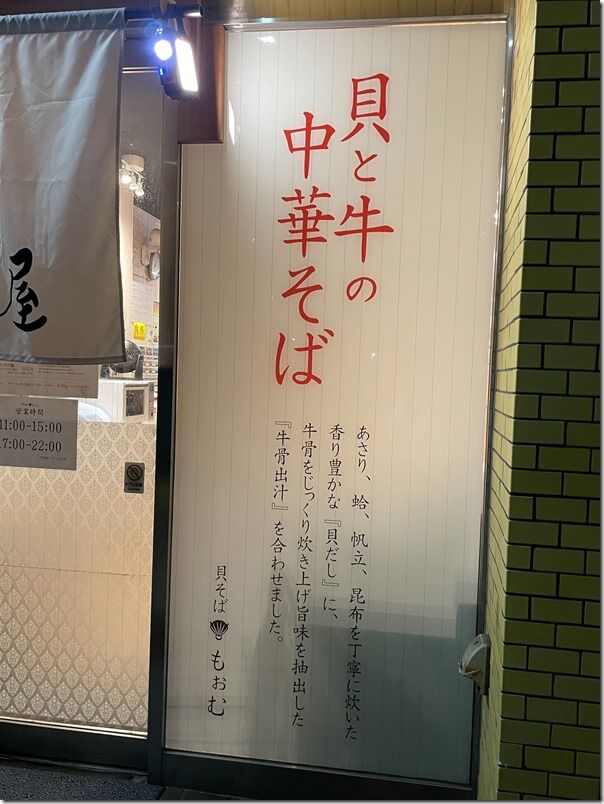 貝と牛の
中華そば
あさり、蛤、帆立、昆布を丁寧に炊いた
香り豊かな『貝だし』に、
牛骨をじっくり炊き上げ旨味を抽出した
『牛骨出汁』を合わせました。
貝そば もぉむ
屋
営業時間
11:00-15:00
17:00-22:00